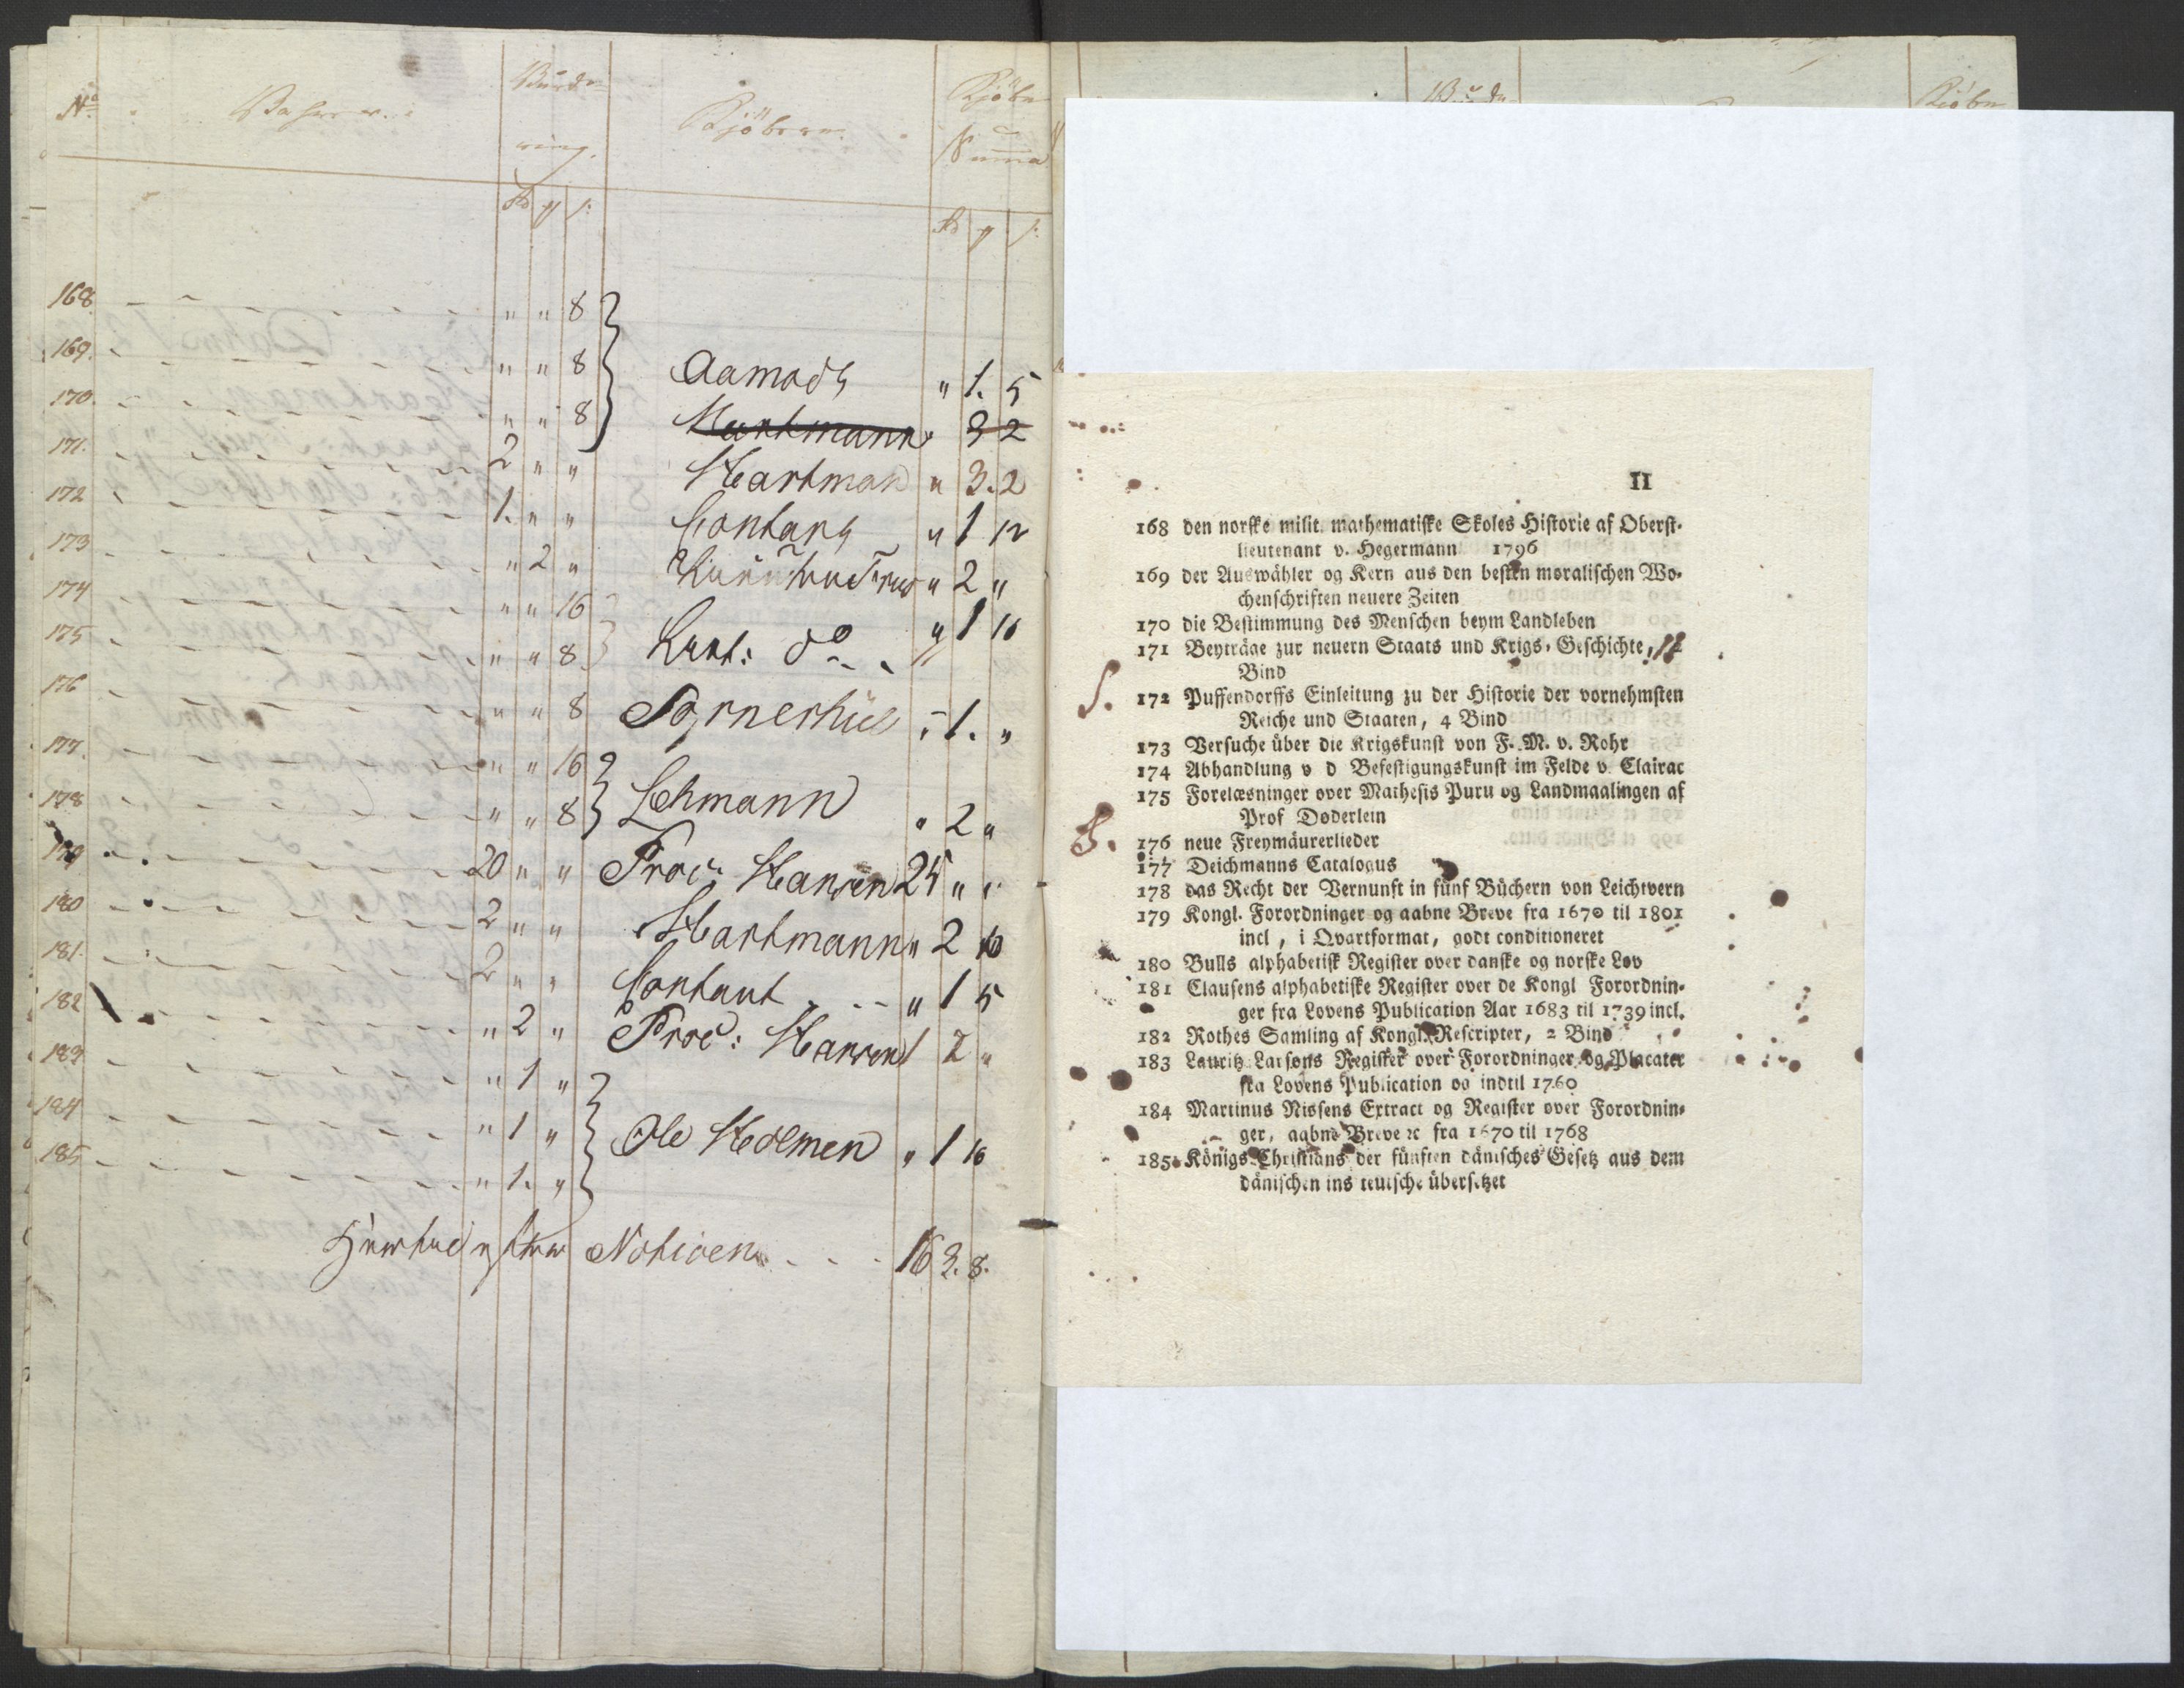 No Vahrene. Kjöberne. Summa
168. " " 8
169. " " 8 Aamodt " 1. 5
170. " " 8 Hartmann " 3 2
171. 2 " " Hartman " 3. 2
172 1. " " Contant " 1 12
173 " 2 " " 2 "
174 " " 16
175 " " 8. do " 1 16
176 " " 8 " 1. "
177. " " 16
178 " " 8 Lehmann " 2 "
179 20 " " Proc: Hansen 25 " "
180 2 " " Hartmann " 2 16
181. 2 " " Contant " 1 5
182 " 2 " Proc: Hansen 1 2 "
183 " 1 "
184 " 1 " Ole Hedemen " 1 16
185 " 1. "
16 3. 8.
11
168 den norske milit. mathematiske Skoles Historie af Oberst-
lieutenant v. Hegermann 1796
169 der Auswähler og Kern aus den besten moralischen Wo-
chenschriften neuere Zeiten
170 die Bestimmung des Menschen beym Landleben
171 Beyträge zur neuern Staats und Krigs-Geschichte, 12
Bind
172 Puffendorffs Einleitung zu der Historie der vornehmsten
Reiche und Staaten, 4 Bind
173 Versuche über die Krigskunst von F. M. v. Rohr
174 Abhandlung v d Befestigungskunst im Felde v. Clairac
175 Forelæsninger over Mathesis Puru og Landmaalingen af
Prof Doderlein
176 neue Freymäurerlieder
177 Deichmanns Catalogus
178 das Recht der Vernunft in fünf Büchern von Leichtvern
179 Kongl. Forordninger og aabne Breve fra 1670 til 1801
incl, i Qvartformat, godt conditioneret
180 Bulls alphabetisk Register over danske og norske Lov
181 Clausens alphabetiske Register over de Kongl Forordnin-
ger fra Lovens Publication Aar 1683 til 1739 incl.
182 Rothes Samling af Kongl. Rescripter, 2 Bind
183 Lauritz Larsons Register over Forordninger og Placater
fra Lovens Publication og indtil 1760
184 Martinus Nissens Extract og Register over Forordnin-
ger, aabne Breve ꝛc fra 1670 til 1768
185 Königs Christians der fünften dänisches Gesetz aus dem
dänischen ins teutsche übersetzet